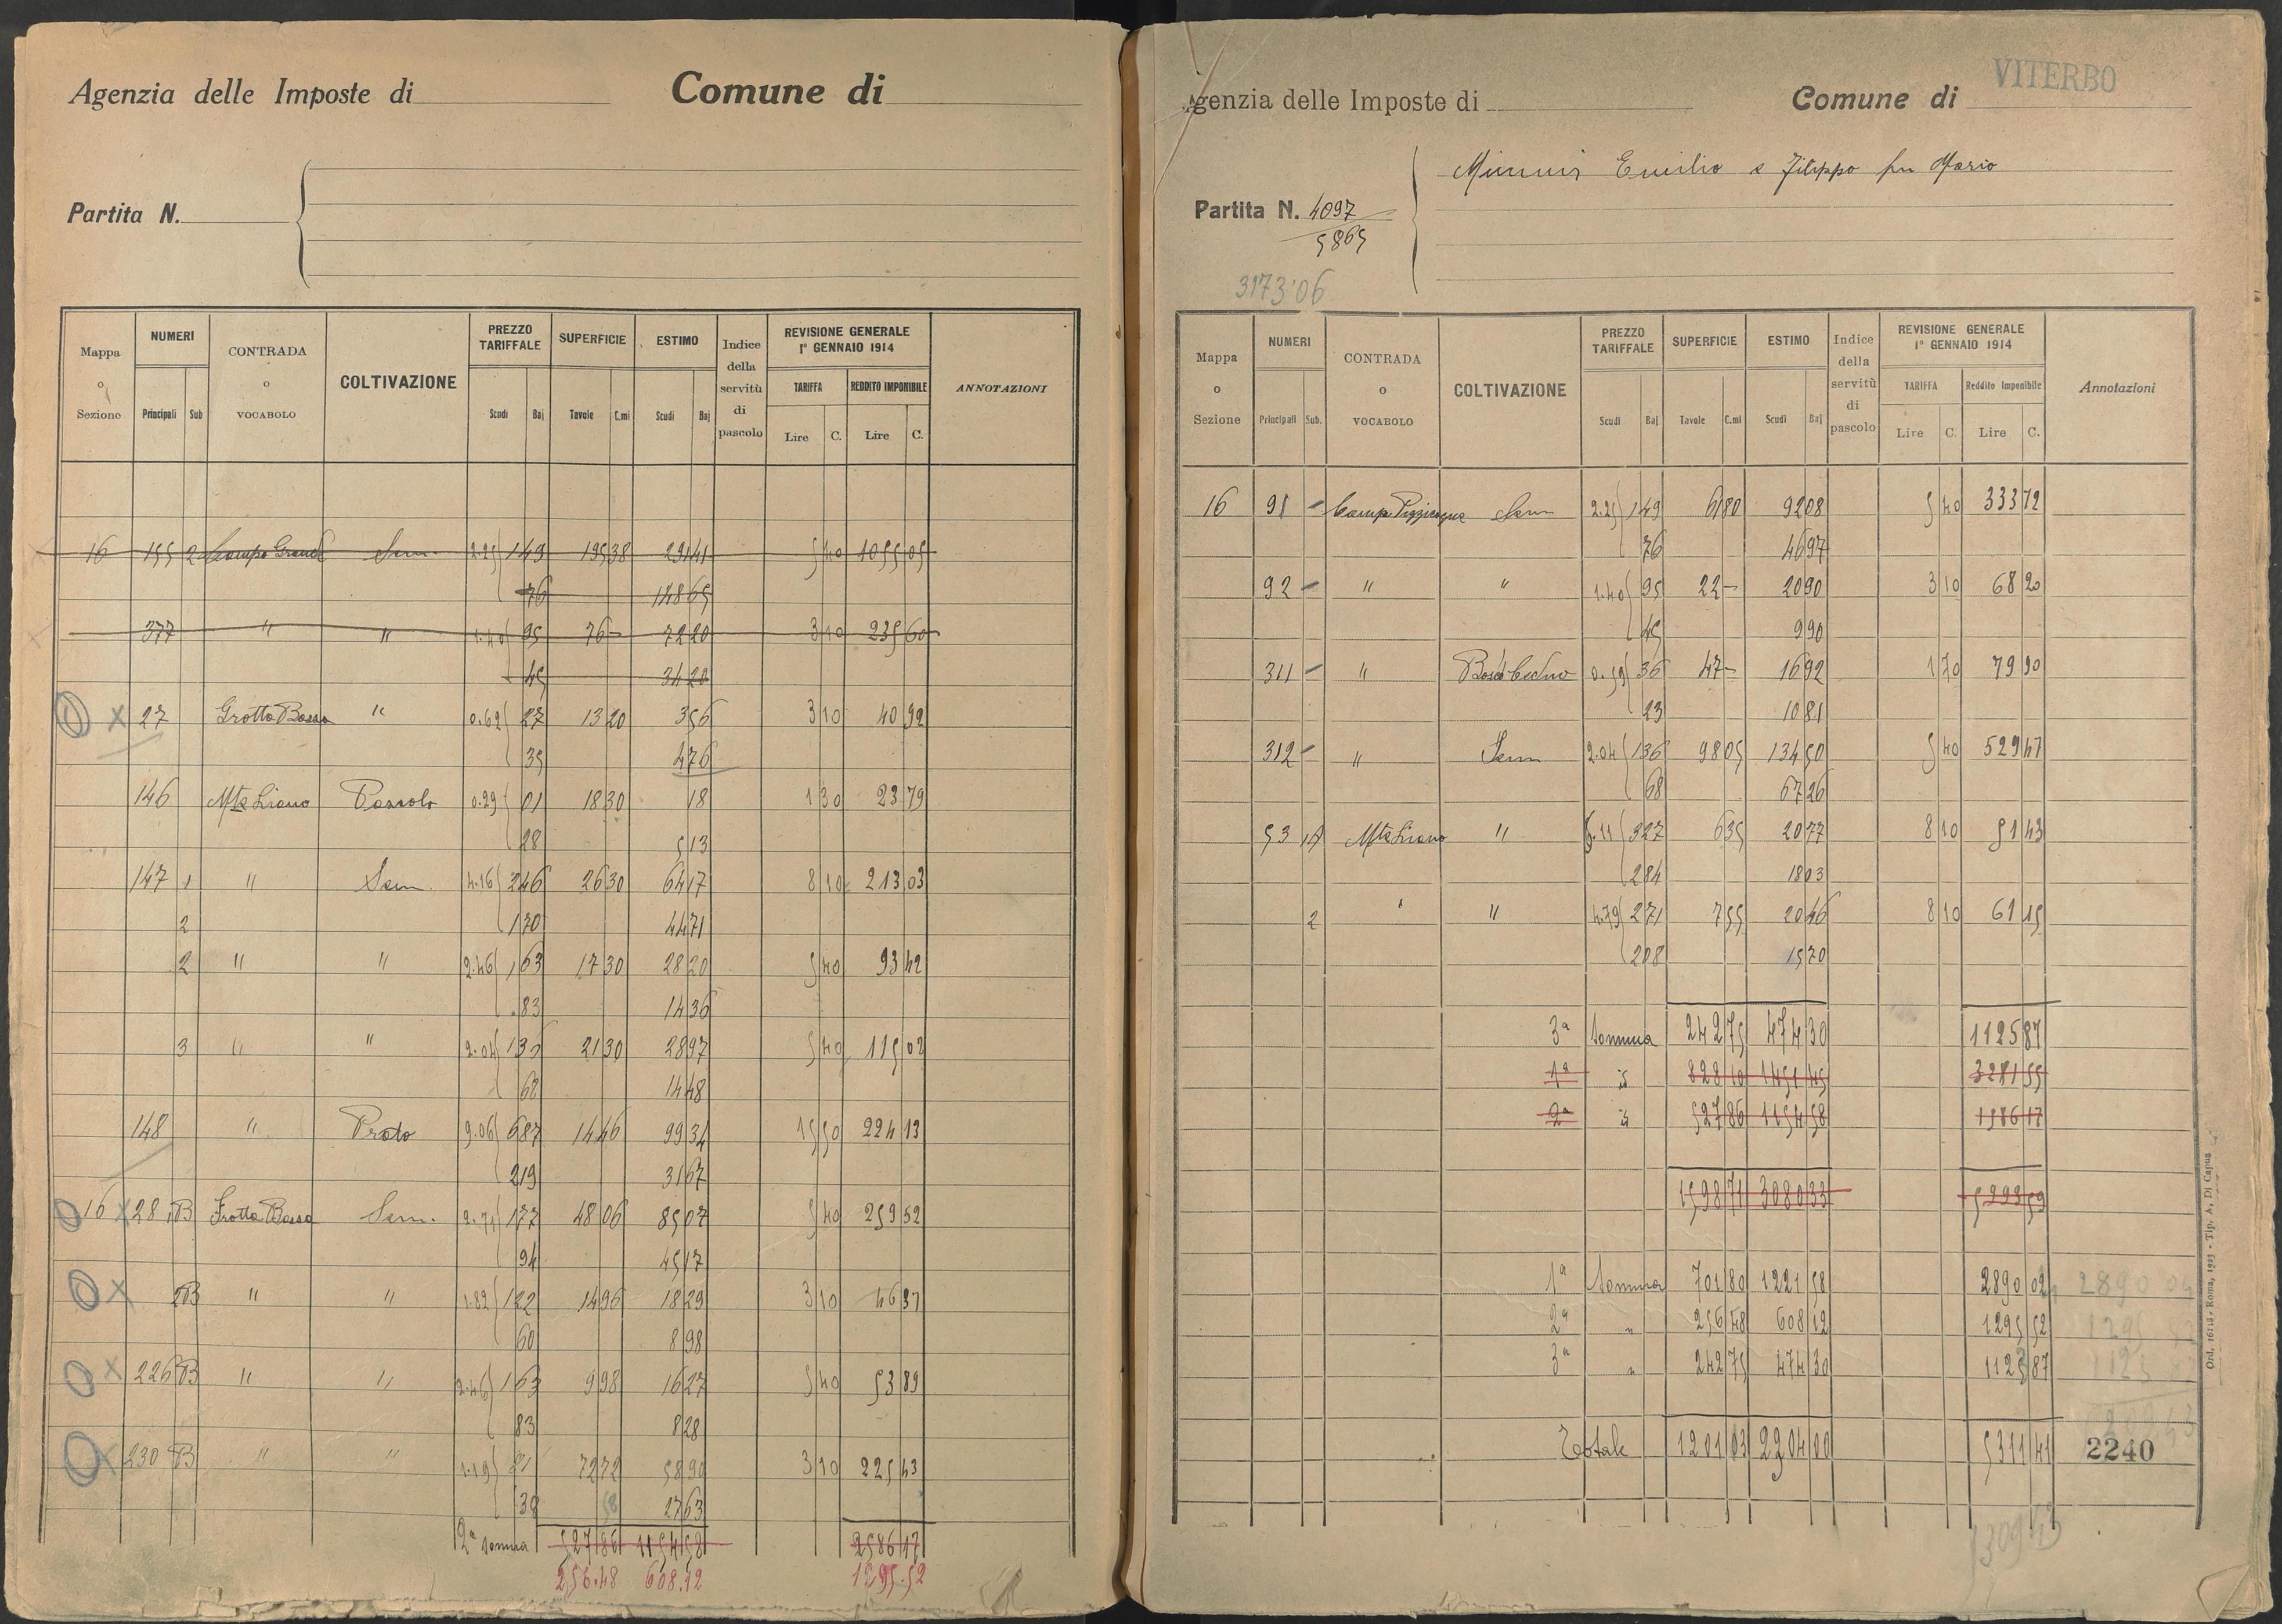 Agenzia delle Imposte di Comune di
Partita N.
Mappa o Sezione NUMERI CONTRADA o VOCABOLO COLTIVAZIONE PREZZO TARIFFALE SUPERFICIE ESTIMO Indice della servitù di pascolo REVISIONE GENERALE 1° GENNAIO 1914 ANNOTAZIONI
TARIFFA REDDITO IMPONIBILE
Principali Sub Scudi Baj Tavole C.mi Scudi Baj Lire C. Lire C.
16 155 2 Campo Grande Sem. 2.25 149 195 38 291 41 5 40 1055 05
76 148 65
377 " " 1.40 95 76 - 72 20 3 10 235 60
45 34 20
27 Grotta Bassa " 0.62 27 13 20 3 56 3 10 40 92
35 4 76
146 Mte Liano Pascolo 0.29 01 18 30 18 1 30 23 79
28 5 13
147 1 " Sem. 4.16 246 26 30 64 17 8 10 213 03
2 170 44 71
2 " " 2.46 163 17 30 28 20 5 40 93 42
83 14 36
3 " " 2.04 136 21 30 28 97 5 40 115 02
68 14 48
148 " Prato 9.06 687 14 46 99 34 15 50 224 13
219 31 67
16 28 1B Grotta Bassa Sem. 2.71 177 48 06 85 07 5 40 259 52
94 45 17
2B " " 1.82 122 14 96 18 29 3 10 46 37
60 8 98
226 B " " 2.46 163 9 98 16 27 5 40 53 89
83 8 28
230 B " " 1.19 81 72 72 58 90 3 10 225 43
38 58 27 63
2a somma 527 86 1154 58 2586 17
256.48 608.12 1295.52
Agenzia delle Imposte di Comune di VITERBO
Partita N. 4097
5865
Emilio e Filippo fu Mario
3173.06
Mappa o Sezione NUMERI CONTRADA o VOCABOLO COLTIVAZIONE PREZZO TARIFFALE SUPERFICIE ESTIMO Indice della servitù di pascolo REVISIONE GENERALE 1° GENNAIO 1914 Annotazioni
TARIFFA Reddito Imponibile
Principali Sub. Scudi Baj Tavole C.mi Scudi Baj Lire C. Lire C.
16 91 - Campo Sem 2.25 149 61 80 92 08 5 40 333 72
76 46 97
92 - " " 1.40 95 22 - 20 90 3 10 68 20
45 9 90
311 - " Bosco Ceduo 0.59 36 47 - 16 92 1 70 79 90
23 10 81
312 - " Sem 2.04 136 98 05 134 50 5 40 529 47
68 67 26
53 1A Mte Liano " 6.11 327 6 35 20 77 8 10 51 43
284 18 03
2 " " 4.79 271 7 55 20 46 8 10 61 15
208 15 70
3a somma 242 75 474 30 1125 87
1a id 828 10 1451 45 3281 55
2a id 527 86 1154 58 1586 17
1598 71 3080 33 5993 59
1a somma 701 80 1221 58 2890 02 2890 04
2a " 256 48 608 12 1295 52 1295 52
3a " 242 75 474 30 1125 87 1125 87
Totale 1201 03 2304 00 5311 41 2240
Ord. 16713 - Roma, 1925 - Tip. A. Di Capua